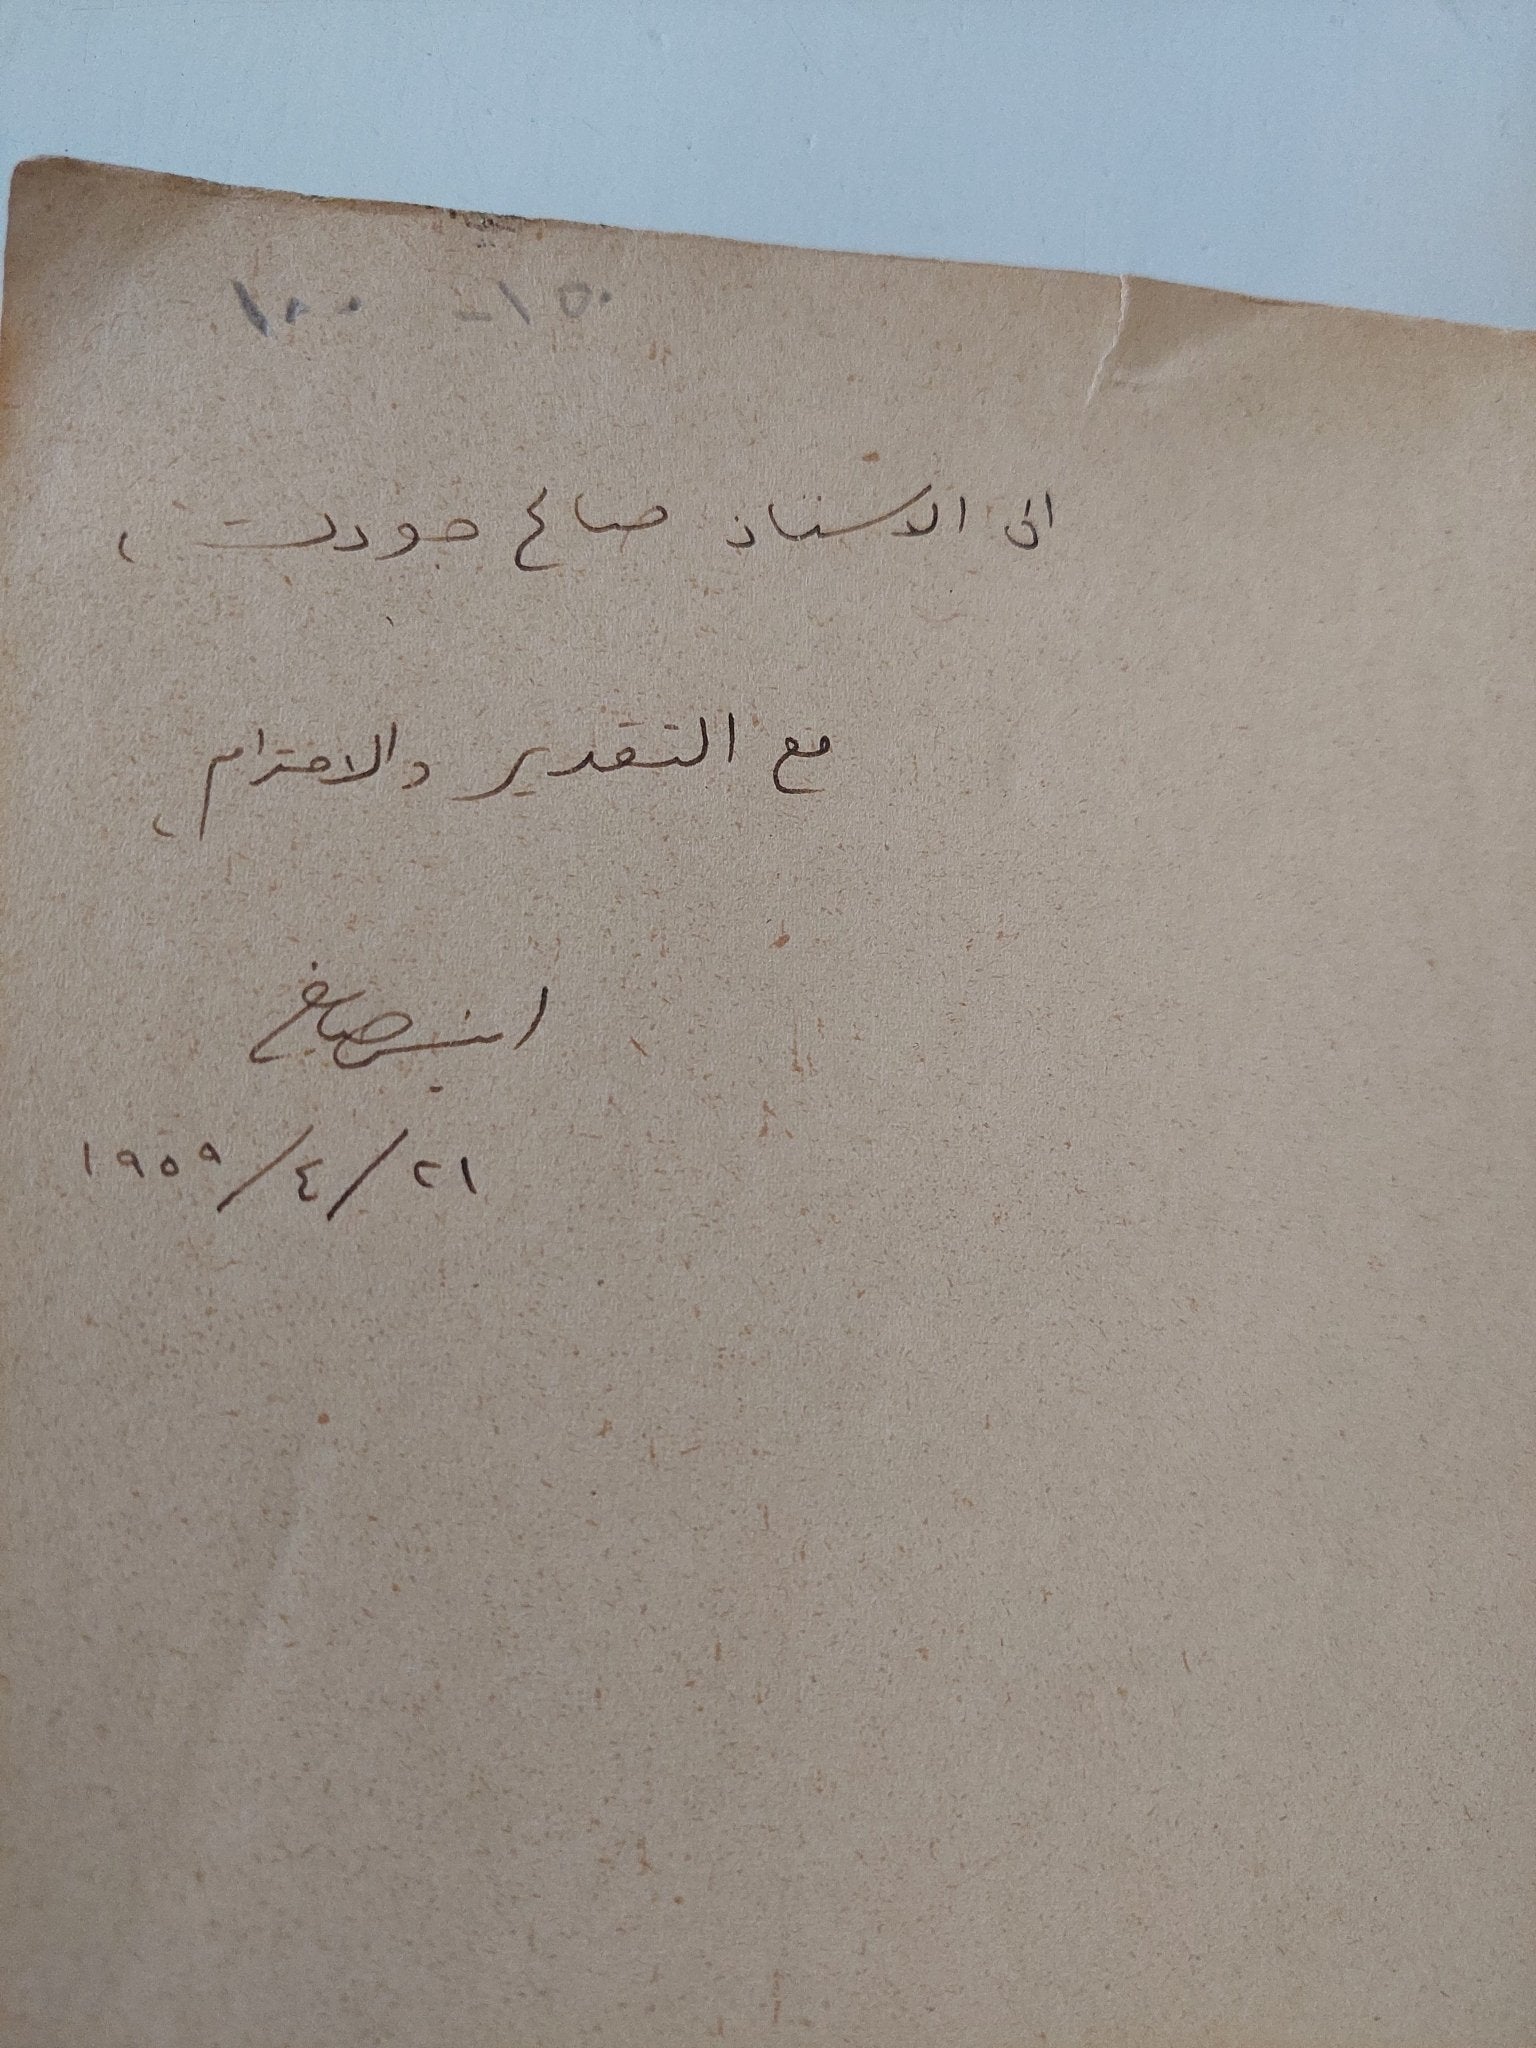 الى الاستاذ صالح جودت ،
مع التقدير والاحترام ،
انيس صايغ
٢١/٤/١٩٥٩